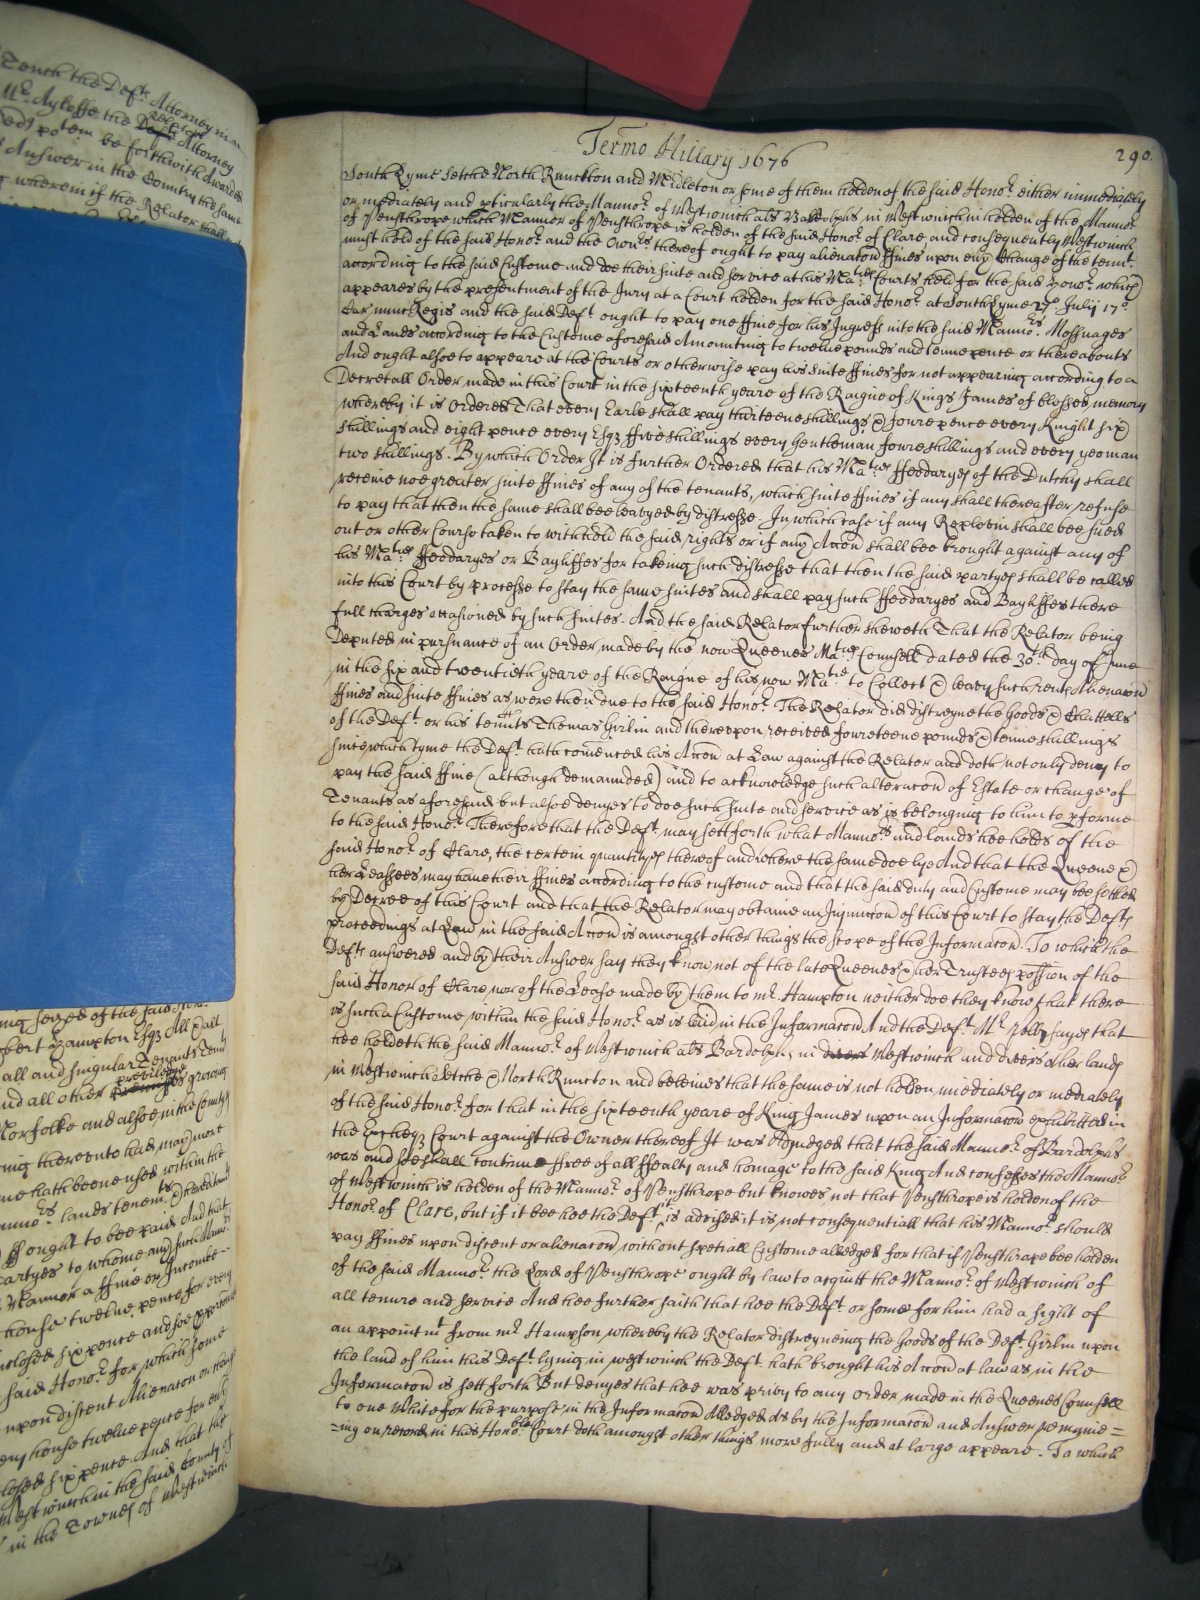 Tenth the Def.ts Attorney
Mr. Ayloffe the Def.ts relators Attorney
potem be forthwith awarded
Answer in the Country the same
wherein if the Relator shall
Termo Hillary 1676
290.
South Lyme Setche North Runckton and Midleton or some of them holden of the said Hono.r either immediately
or mediately and pticularly the Manno.r of Westwinch als Bardolphs in Westwinch is holden of the Manno.r
of Pensthrope which Mannor of Pensthrope is holden of the said Hono.r of Clare and consequently Westwinch
must hold of the said Hono.r and the Own.rs thereof ought to pay alienacon ffines upon eny Change of the tenn.t
according to the said Custome and doe their suite and service at his Ma.ties Courts held for the said Hono.r which
appeares by the presentment of the Jury at a Court holden for the said Hono.r at South Lyme July 17.o
Car nunc Regis and the said Def.t ought to pay one ffine for his Ingress into the said Manno.rs Messuages
and Lands according to the Custome aforesaid Amounting to twelve pounds and tenne pence or thereabouts
And ought alsoe to appeare at the Courts or otherwise pay his suite ffines for not appearing according to a
Decretall Order made in this Court in the sixteenth yeare of the Raigne of Kings James of blessed memory
whereby it is Ordered That every Earle shall pay thirteene shillings & foure pence every Knight six
shillings and eight pence every Esq ffive shillings every Gentleman foure shillings and every yeoman
two shillings. By which Order It is further Ordered that his Ma.ties ffeodaryes of the Dutchy shall
receive noe greater suite ffines of any of the tenants, which suite ffines if any shall thereafter refuse
to pay that then the same shall bee leavyed by distresse. In which case if any Replevin shall bee sued
out or other Course taken to withhold the said rights or if any Accon shall bee brought against any of
his Ma.ties ffeodaryes or Bayliffes for takeing such distresse that then the said partyes shall be called
into this Court by processe to stay the same suites and shall pay such ffeodaryes and Bayliffes there
full charges occasioned by such suites. And the said Relator further sheweth That the Relator being
Deputed in pursuance of an Order made by the now Queenes Ma.ties Counsell dated the 30.th day of June
in the six and twentieth yeare of the Raigne of his now Ma.tie to Collect & leavy such rents Alienacon
ffines and suite ffines as were then due to the said Hono.r The Relator did distreyne the Goods & Chattells
of the Def.t or his tennts Thomas Girlin and thereupon received foureteene pounds & tenne shillings
since which tyme the Def.t hath comenced his Accon at Law against the Relator and doth not only deny to
pay the said ffine (although demannded) and to acknowledge such alteracon of Estate or change of
Tenants as aforesaid but alsoe denyes to doe such suite and service as is belonging to him to pforme
to the said Hono.r Therefore that the Def.t may sett forth what Manno.rs and lands hee holds of the
said Hono.r of Clare, the certein quantityes thereof and where the same doe lye And that the Queene &
her Leassees may have their ffines according to the custome and that the said duty and Custome may bee setled
by Decree of this Court and that the Relator may obtaine an Injunccon of this Court to stay the Def.ts
proceedings at Law in the said Accon is amongst other things the scope of the Informacon. To which the
Def.ts answered and by their Answer say they know not of the late Queenes & her Trustees possion of the
said Honor of Clare, nor of the Lease made by them to m.r Hampton neither doe they know that there
is such a Custome within the said Hono.r as is laid in the Informacon And the Def.t M.r sayes that
hee holdeth the said Manno.r of Westwinch als Bardolphs in Westwinch and divers other lands
in Westwinch Setche & North Runcton and beleives that the same is not holden imediately or mediately
of the said Hono.r for that in the sixteenth yeare of King James upon an Informacon exhibitted in
the Excheq Court against the Owner thereof It was Adjudged that the said Manno.r of Bardolphs
was and soe shall continue ffree of all ffealty and homage to the said King And confesses the Manno.r
of Westwinch is holden of the Manno.r of Pensthrope but knowes not that Pensthrope is holden of the
Hono.r of Clare, but if it bee hee the Def.t is advised it is not consequentiall that his Manno.r should
pay ffines upon discent or alienacon without spetiall Custome alledged for that if Pensthrope bee holden
of the said Manno.r the Lord of Pensthrope ought by law to acquitt the Manno.r of Westwinch of
all tenure and service And hee further saith that hee the Def.t or some for him had a sight of
an appointm.t from m.r Hampson, whereby the Relator distreyneing the Goods of the Def.t Girlin upon
the land of him this Def.t lying in westwinch the Def.t hath brought his Accon at law as in the
Informacon is sett forth But denyes that hee was privy to any order made in the Queenes Counsell
to one White for the purpose in the Informacon Alledged As by the Informacon and Answer remaine=
=ing on record in this Hono.ble Court doth amongst other things more fully and at large appeare. To which
seized of the said Hono.r
Hampton Esq All & all
all and singular Tenants
and all other priviledges growing
Norfolke and alsoe in the County
thereunto had may more
hath beene used within the
lands tenem.ts & hereditam
ought to bee paid And that
partyes to whome any such
Mannor a ffine or Income
house twelve pence for every
inclosed six pence and soe
said Hono.r for which some
upon discent Alienacon or
house twelve pence for every
six pence And that the
Westwinch in the said County of
in the Townes of Westwinch